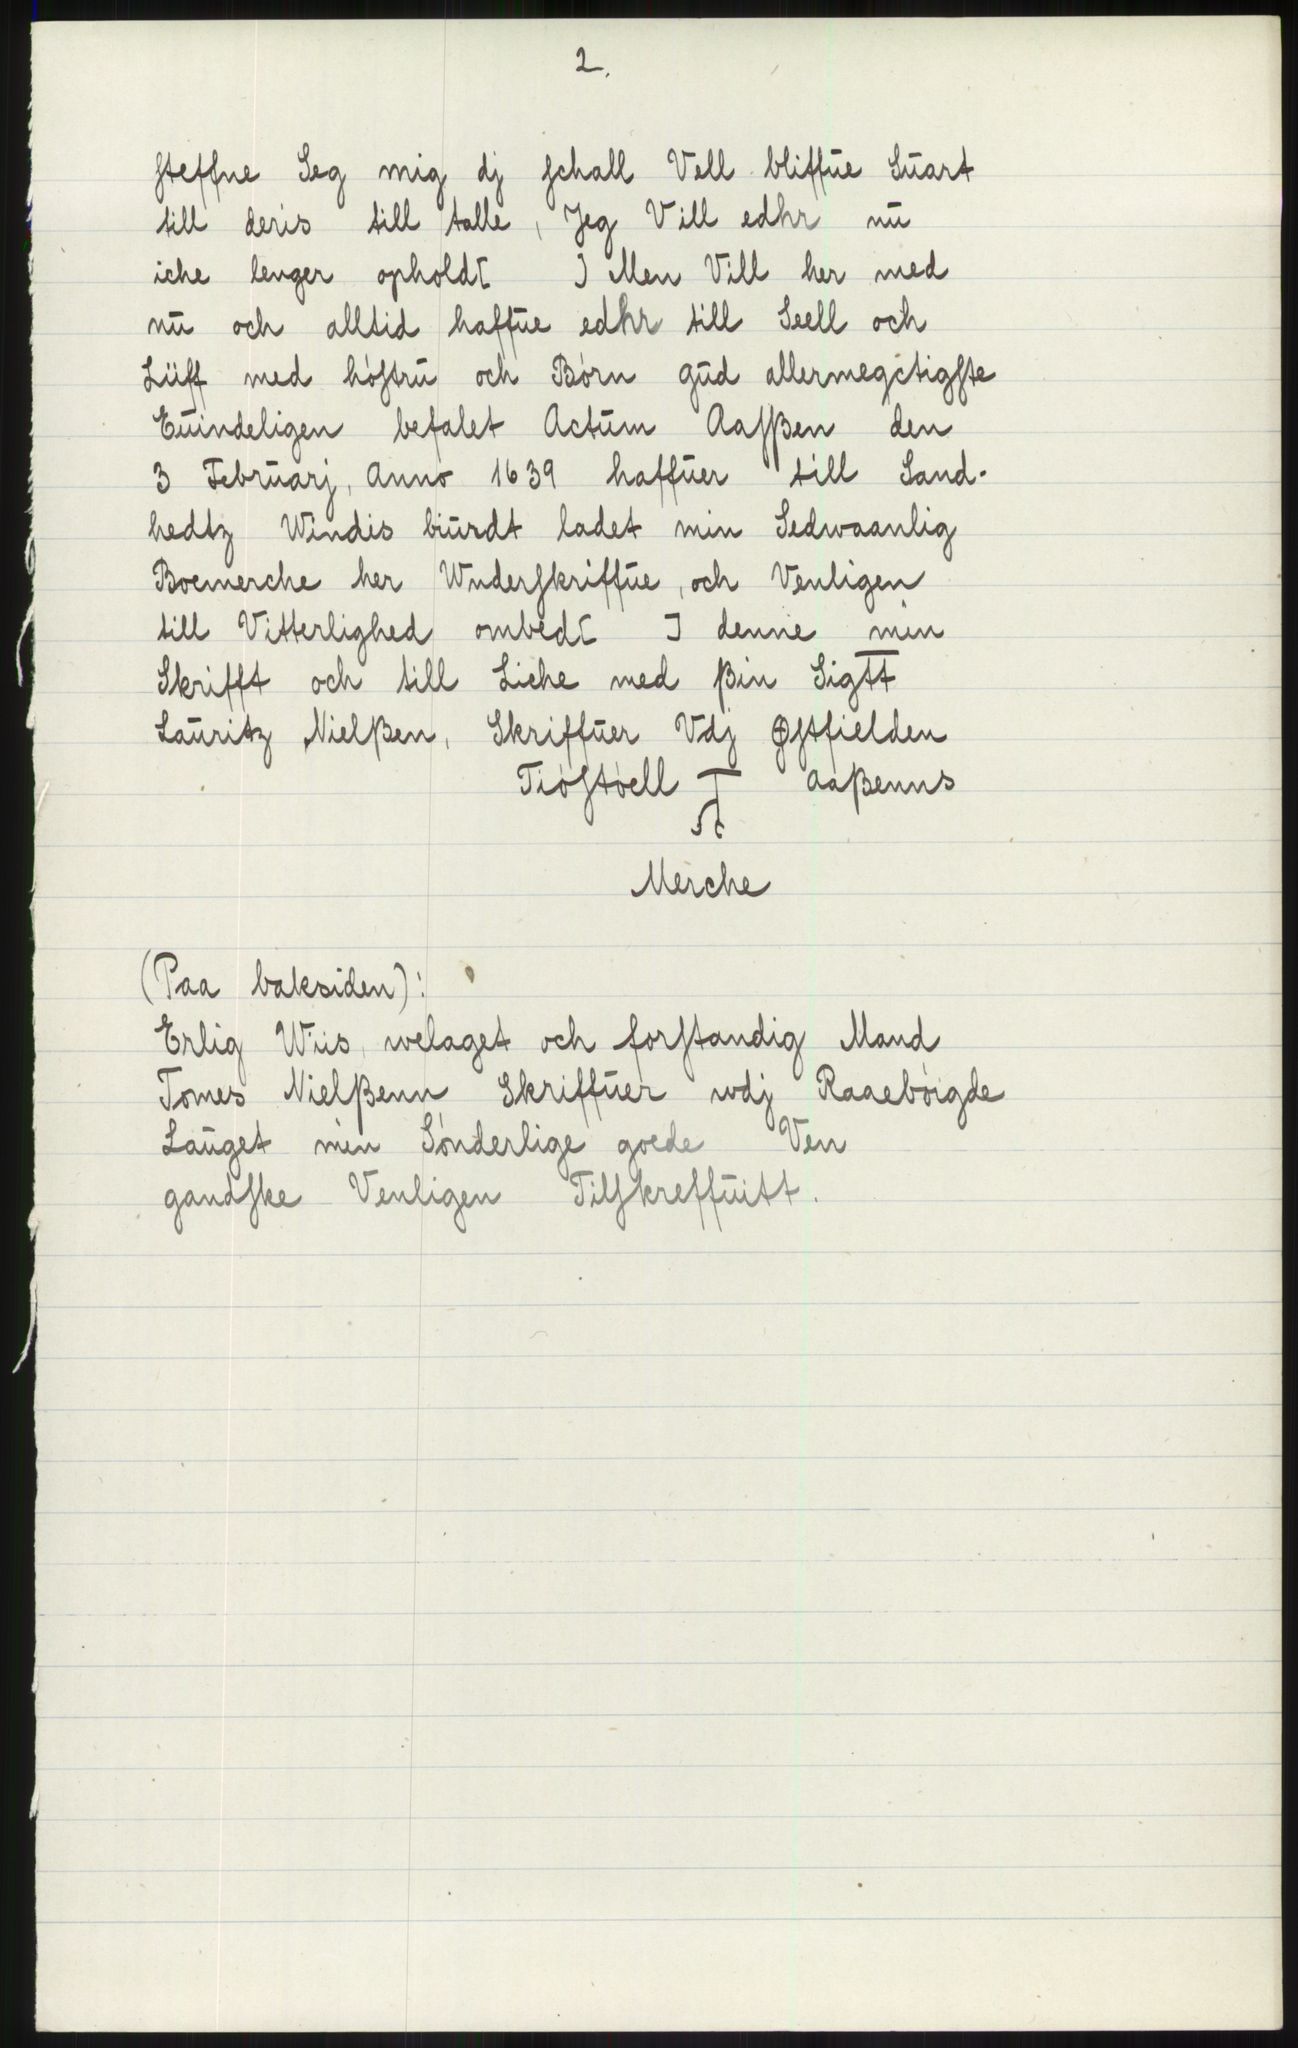 2.
ſteffne Seg mig dj ſchall Vell bliffŭe Sŭart
till deris till talle, Jeg Vill edhr nŭ
iche lenger opholdt[ ] Men Vill her med
nŭ och alltid haffŭe edhr till Seell och
Lüff med hóſtrŭ och Bórn gŭd allermegctigſte
Eŭindeligen befalet Actŭm Aaſßen den
3 Febrŭarj, Anno 1639 haffŭer till Sand-
hedtz Windis bŭrdt ladet min Sedwaanlig
Boemerche her Wnderſkriffŭe, och Venligen
till Vitterlighed ombedt[ ] denne min
Skrifft och till Liche med ßin Sigtt
Laŭritz Nielßen, Skriffŭer Vdj Øſtfielden
Tióſtóell Aaßenns
Merche
(Paa baksiden):
Erlig Wiis, welaget och forſtandig Mand
Tomes Nielßenn Skriffŭer wdj Raaebóigde
Laŭget min Sónderlige goede Ven
gandſke Venligen Tilſkreffŭitt.